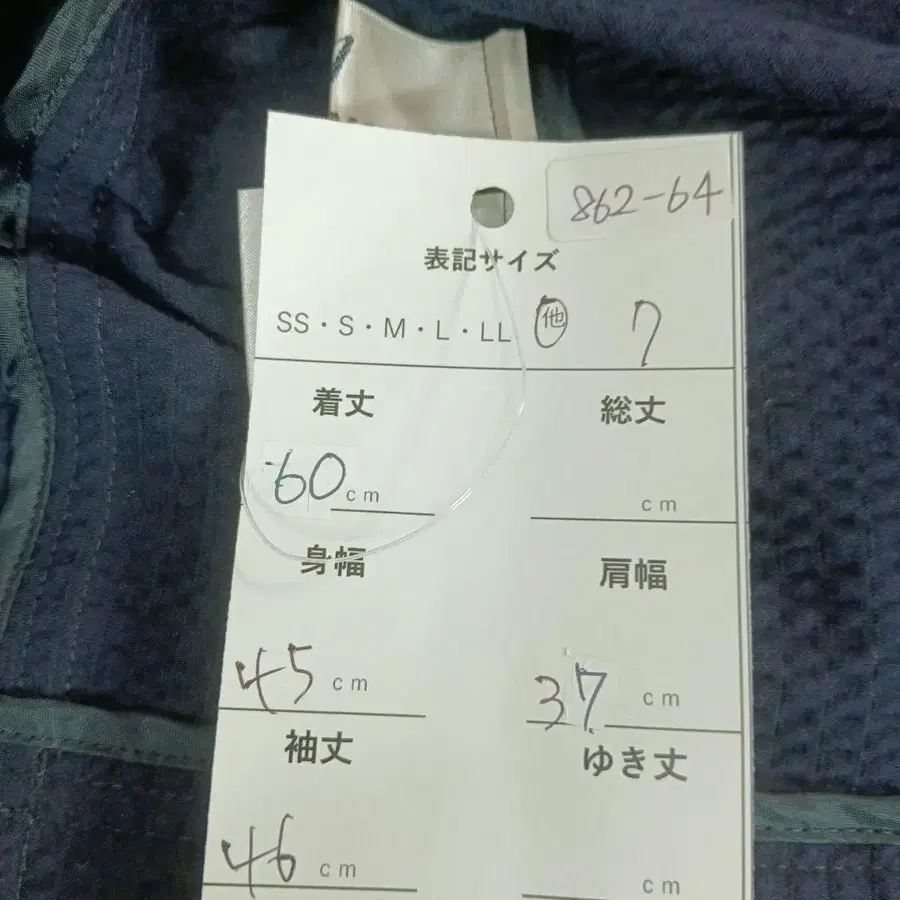 862-64
表記サイズ
SS・S・M・L・LL 他 7
着丈 総丈
60cm cm
身幅 肩幅
45 cm 37 cm
袖丈 ゆき丈
46 cm cm